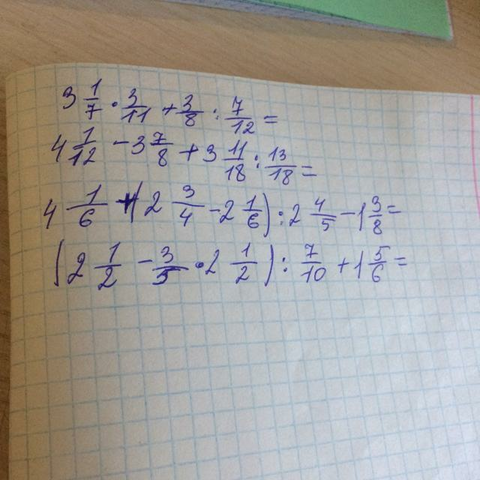 3 1/7 · 3/11 + 3/8 : 7/12 =
4 1/12 - 3 7/8 + 3 11/18 : 13/18 =
4 1/6 + (2 3/4 - 2 1/6) : 2 4/5 - 1 3/8 =
(2 1/2 - 3/5 · 2 1/2) : 7/10 + 1 5/6 =